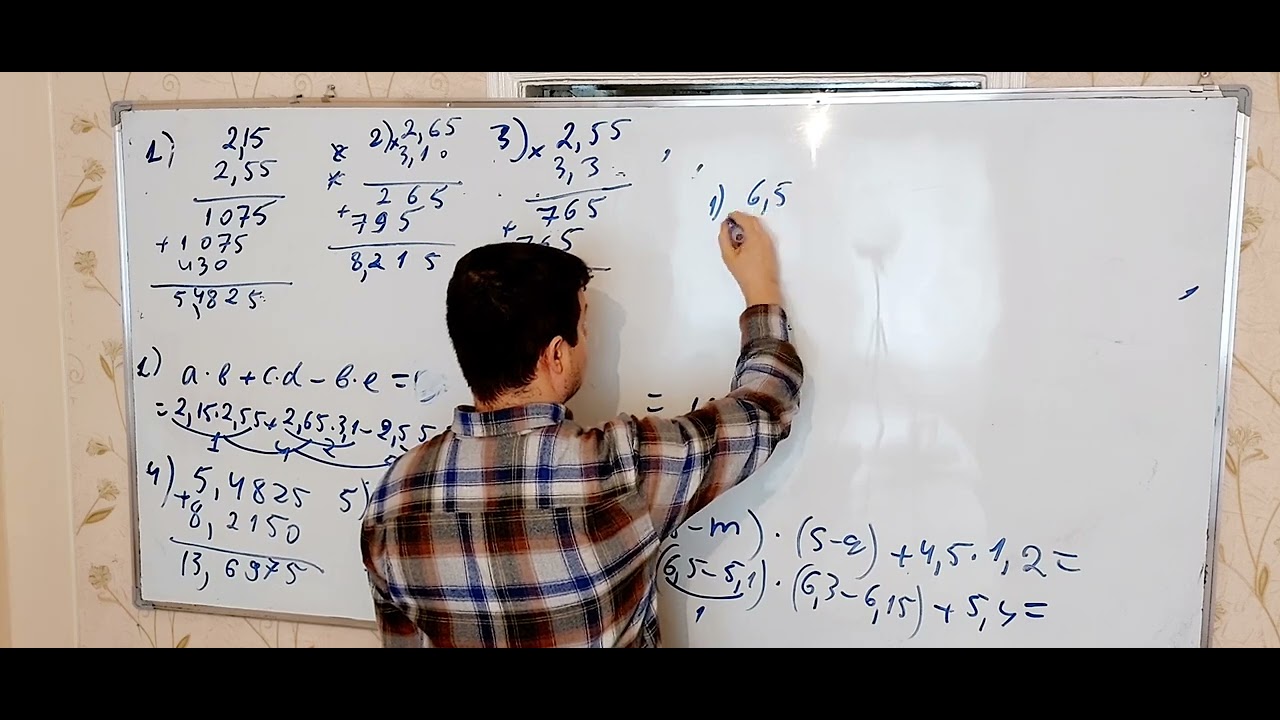 1) 2,15
2,55
1075
+ 1075
430
5,4825
2) × 2,65
3,10
265
+ 795
8,215
3) × 2,55
3,3
765
+ 765
2) a·b + c·d – b·e =
= 2,15·2,55 + 2,65·3,1 – 2,55
1 4 2
4) 5,4825
+ 8,2150
13,6975
5)
1) 6,5
=
– m) · (s – q) + 4,5 · 1,2 =
(6,5 – 5,1) · (6,3 – 6,15) + 5,4 =
1